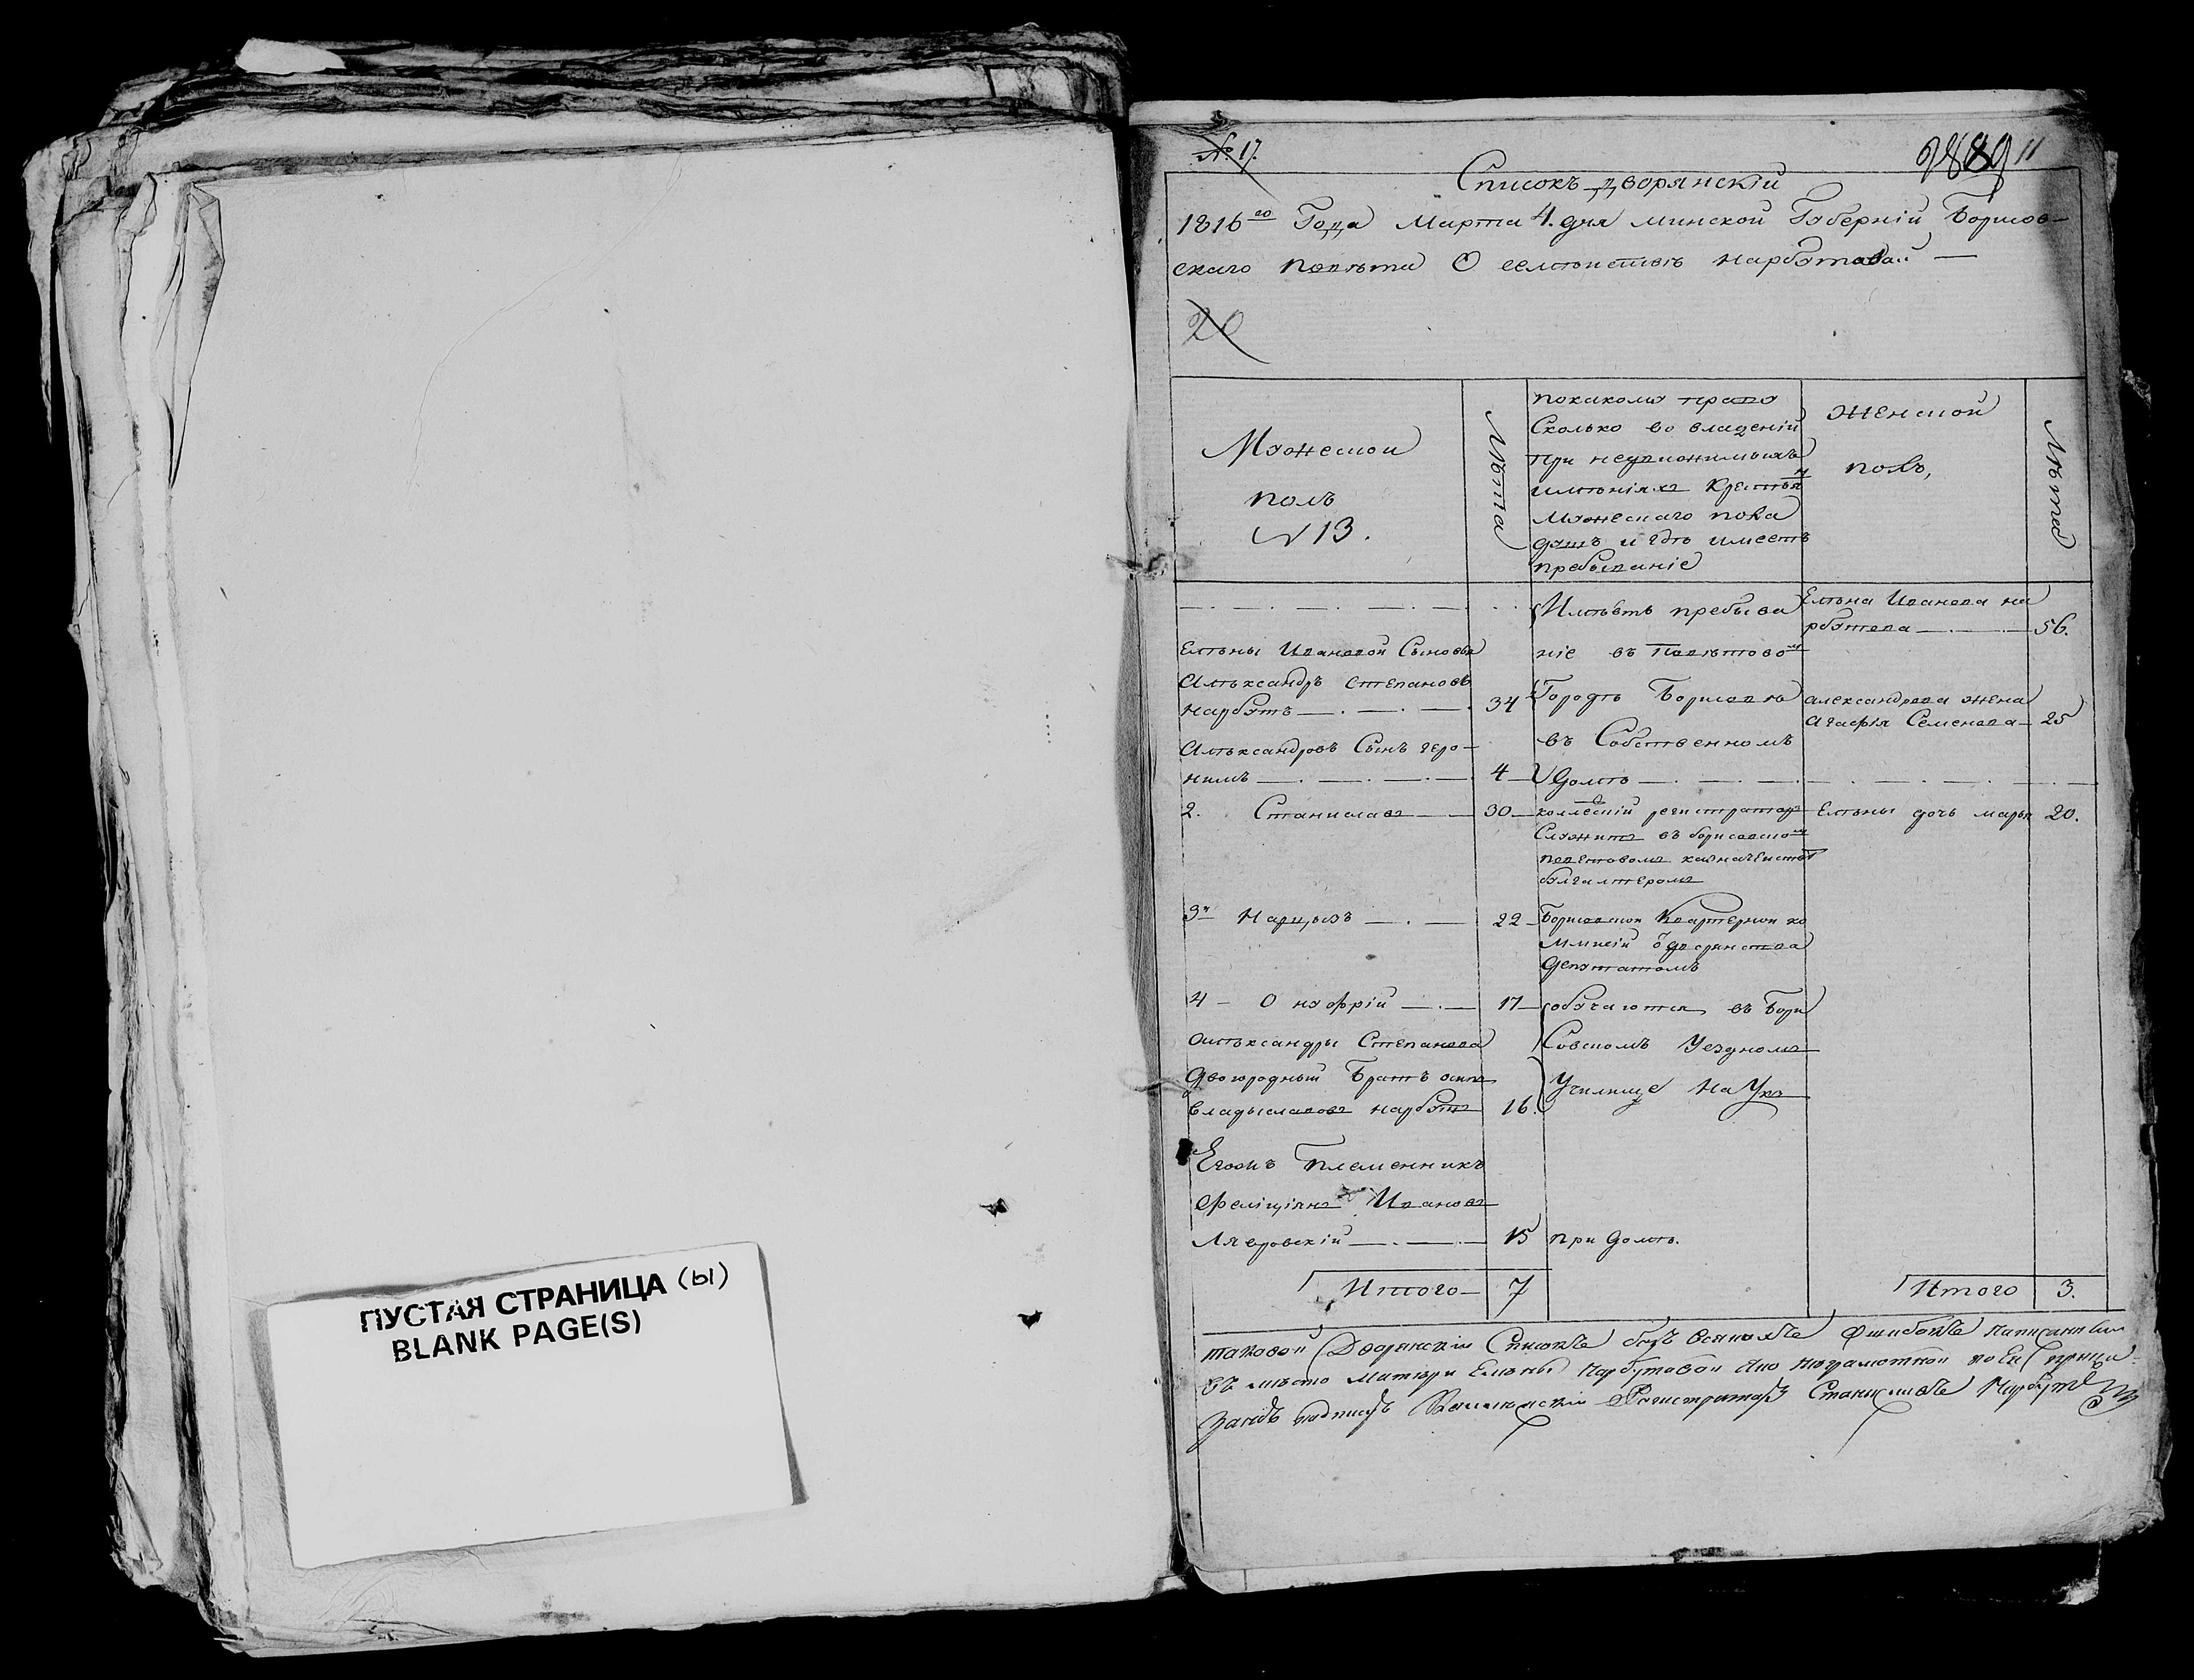 ПУСТАЯ СТРАНИЦА (ы)
BLANK PAGE(S)
№ 17.
11
Списокъ дворянскій
1816го Года Марта 4. дня минской Губерніи Борисов-
скаго повѣта О семѣиствѣ нарбутовой —
20
Мужеской
полъ
N 13.
Лѣта
покакому праву
Сколько во владеніи
при недвижимыхъ
имѣніяхъ Крестьян
Мужескаго пола
душъ и гдѣ имеетъ
пребываніе
Женской
полъ,
Лѣта
Имѣетъ пребыва
Елѣна Иванова на
рбутова — 56.
Елѣны Ивановой Сыновья
ніе въ Повѣтовом
Алѣксандръ Степановъ
нарбутъ — 34
Городѣ Борисовѣ
александрова жена
Агафія Семенова — 25
Алѣксандровъ Сынъ геро-
нимъ — 4
въ Собственномъ
домѣ —
2. Станиславъ — 30
колѣскій регистраторъ
Служитъ въ борисовском
поветовомъ казначеиствѣ
бухгалтеромъ
Елѣны дочь марья 20.
3й Нарцызъ — 22
Борисовской Квартернои ко
Миисіи Ѿ дворинства
Депутатомъ
4 — Онуфрій — 17
обучаются въ Бори
Совскомъ Уездномъ
Училище НаУкъ
Алѣксандры Степанова
Двоюродный Братъ осипъ
Владыславовъ нарбутъ 16.
Еговъ Племенникъ
Феліціянъ Ивановъ
Лявровскій — 15
при домѣ.
Итого — 7
Итого 3.
таковой Дворянскій Списокъ безъ Всякихъ Ошибокъ написанный
въ мѣсто Матери Елѣны Нарбутовой яко неграмотной по Ея
подписалъ Регистраторъ Станиславъ Нарбутъ